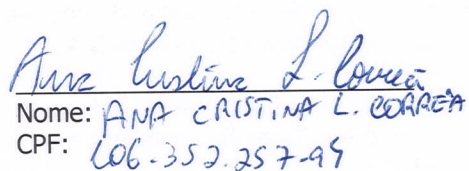 Ana Cristina L. Correa
Nome: ANA CRISTINA L. CORREA
CPF: 606.352.257-94